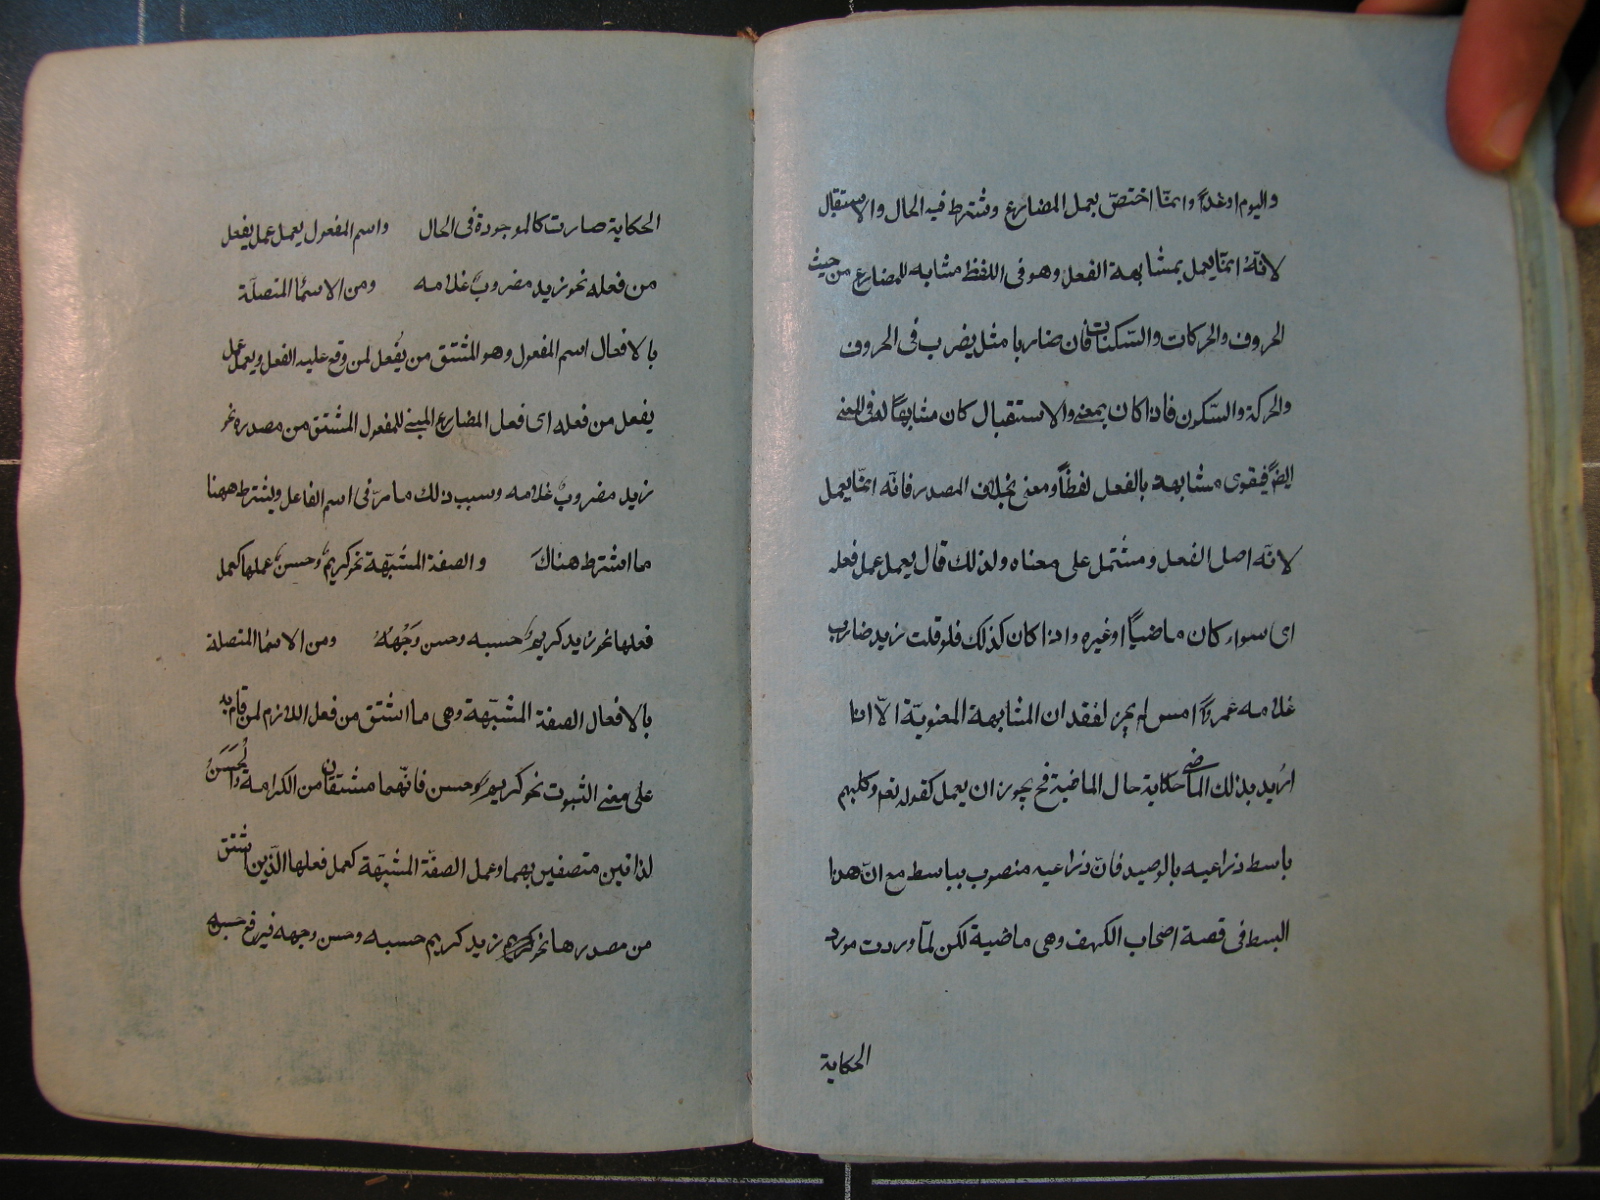 واليوم او غداً وانمّا اختصّ بعمل المضارع وشترط فيه الحال والاستقبال
لانّهُ انمّا يعمل بمشابهة الفعل وهو فى اللفظ مشابه للمضارع من حيث
الحروف والحركات والسّكنات فان ضاربا مثل يضرب فى الحروف
والحركة والسّكون فاذا كان بمعنے والاستقبال كان مشابهاً له فى المعنے
ايضاً فيقوى مشابهة بالفعل لفظاً ومعنى بخلاف المصدر فانّه انمّا يعمل
لانّه اصل الفعل ومشتمل على معناه ولذلك قال يعمل عمل فعله
اى سواء كان ماضياً او غيره واذا كان كذلك فلو قلت زيد ضارب
غلامه عمرواً امس لم يجز لفقدان المشابهة المعنويّة الاّ اذا
اريد بذلك الماضى حكاية حال الماضية فح يجوز ان يعمل كقوله تعم وكلبهم
باسط ذراعيه بالوصيد فانّ ذراعيه منصوب بباسط مع انّ هذا
البسط فى قصة اصحاب الكهف وهى ماضية لكن لمّا وردت مورد
الحكاية
الحكاية صارت كالموجودة فى الحال واسم المفعول يعمل عمل يفعل
من فعله نحو زيد مضروبٌ غلامه ومن الاسمٓا المتصلّة
بالافعال اسم المفعول وهو المشتق من يُفعل لمن وقع عليه الفعل ويعمل عمل
يفعل من فعله اى فعل المضارع المبنے للمفعول المشتق من مصدره نحو
زيد مضروبٌ غلامه وسبب ذلك ما مرّ فى اسم الفاعل ويشترط ههنا
ما اشترط هناك والصفة المشبّهة نحو كريمٌ وحسنٌ عملها كعمل
فعلها نحو زيد كريمٌ حسبه وحسن وَجْهُهُ ومن الاسمٓا المتصلة
بالافعال الصفة المشبّهة وهى ما اشتق من فعل اللازم لمن قام به
على معنے الثبوت نحو كريمٌ وحسن فانّهما مشتقان من الكرامة والحَسَنُ
لذاتين متصفين بهما وعمل الصفّة المشبّهة كعمل فعلها الّذين اشتق
من مصدرها نحو كريم زيد كريم حسبه وحسن وجهه فيرفع حسبه